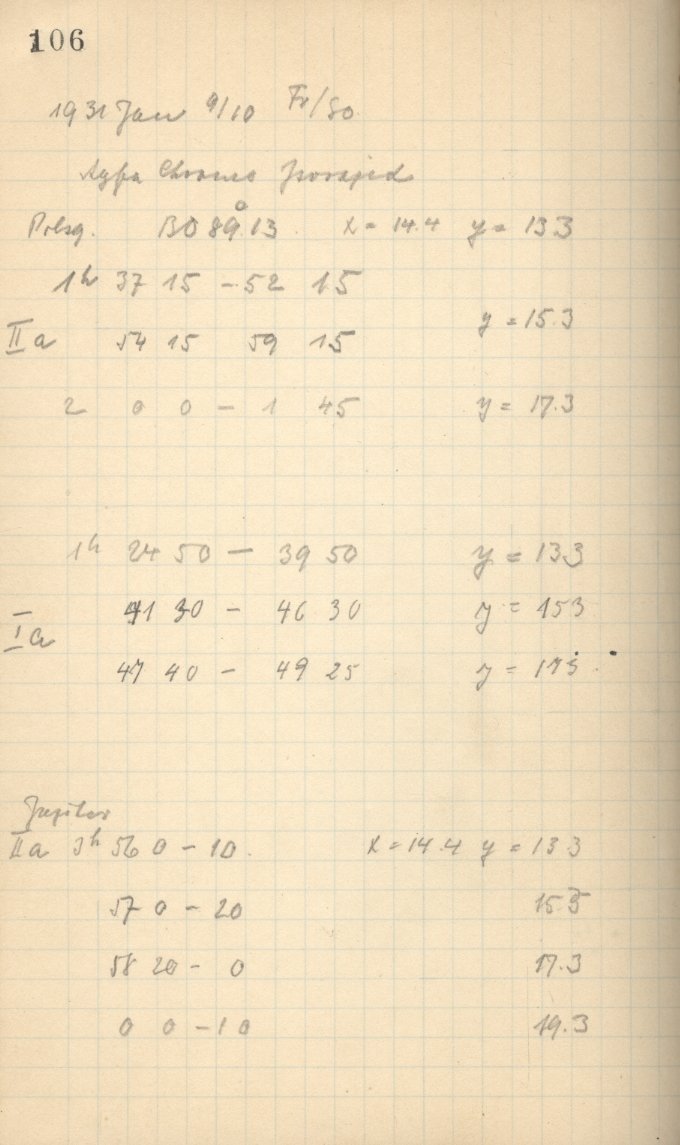 106
1931 Jan 9/10 Fr/So
Agfa Chromo Isorapid
Polsq. BD 89°.13 x = 14.4 y = 13.3
1h 37 15 - 52 15
y = 15.3
IIa 54 15 59 15
2 0 0 - 1 45 y = 17.3
1h 24 50 - 39 50 y = 13.3
41 30 - 46 30 y = 15.3
Ia
47 40 - 49 25 y = 17.3
Jupiter
IIa 3h 56 0 - 10 x = 14.4 y = 13.3
57 0 - 20 15.3
58 20 - 0 17.3
0 0 - 10 19.3